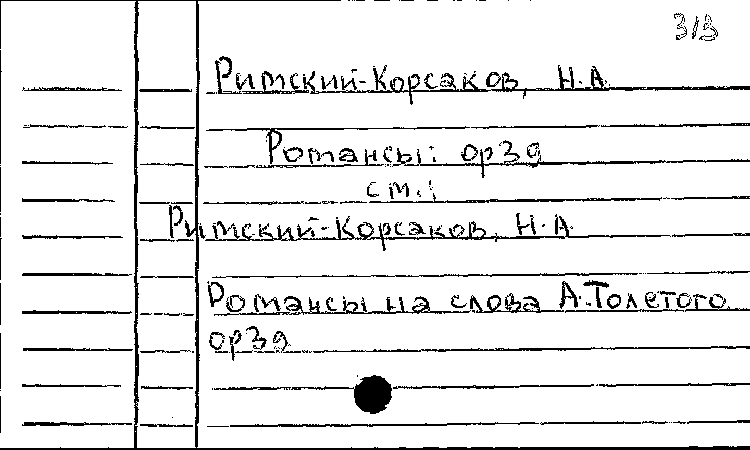 313
Римский-Корсаков, Н.А.
Романсы: ор39
см.:
Римский-Корсаков, Н.А.
Романсы на слова А.Толстого
ор39